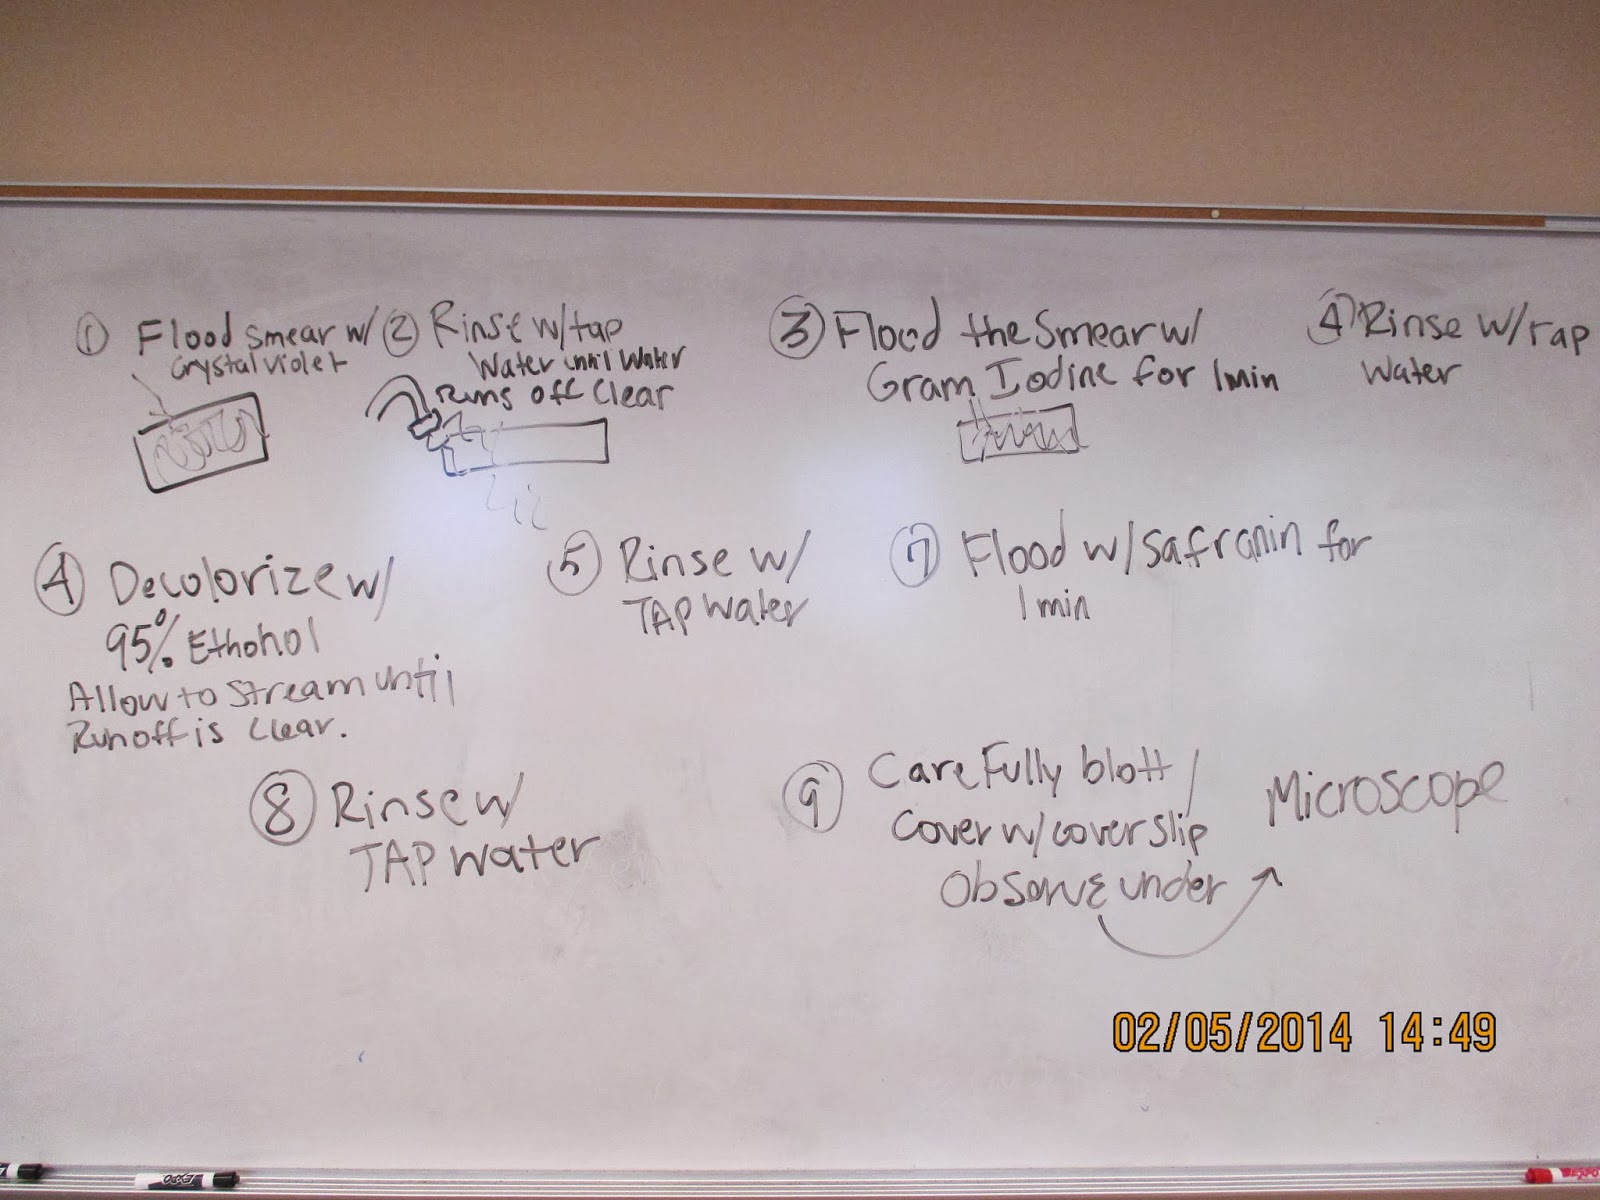 ① Flood smear w/
crystal violet
② Rinse w/ tap
water until water
Runs off clear
③ Flood the smear w/
Gram Iodine for 1 min
④ Rinse w/ tap
water
④ Decolorize w/
95% Ethohol
Allow to stream until
Runoff is clear.
⑤ Rinse w/
TAP water
⑦ Flood w/ safranin for
1 min
⑧ Rinse w/
TAP water
⑨ Carefully blott /
cover w/ cover slip
Observe under
Microscope
02/05/2014 14:49
EXPO